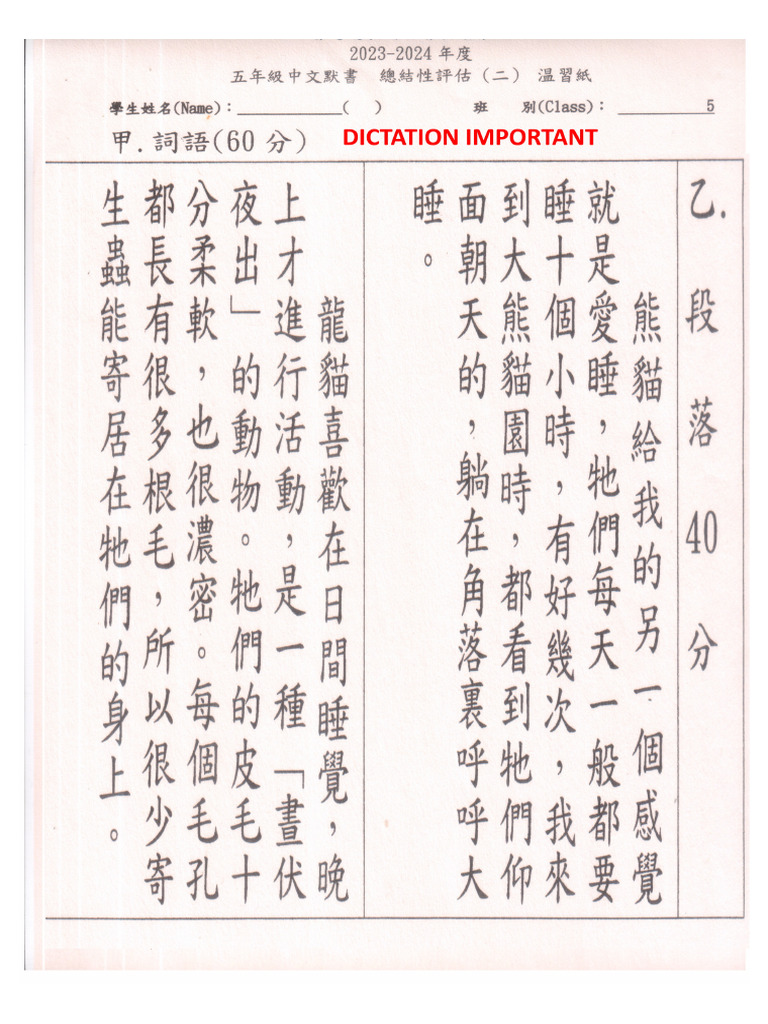 2023-2024 年度
五年級中文默書 總結性評估（二） 温習紙
學生姓名(Name)：____________( ) 班 別(Class)：__________5
甲.詞語(60 分) DICTATION IMPORTANT
乙.段落 40 分
熊貓給我的另一個感覺
就是愛睡，牠們每天一般都要
睡十個小時，有好幾次，我來
到大熊貓園時，都看到牠們仰
面朝天的，躺在角落裏呼呼大
睡。
龍貓喜歡在日間睡覺，晚
上才進行活動，是一種「晝伏
夜出」的動物。牠們的皮毛十
分柔軟，也很濃密。每個毛孔
都長有很多根毛，所以很少寄
生蟲能寄居在牠們的身上。